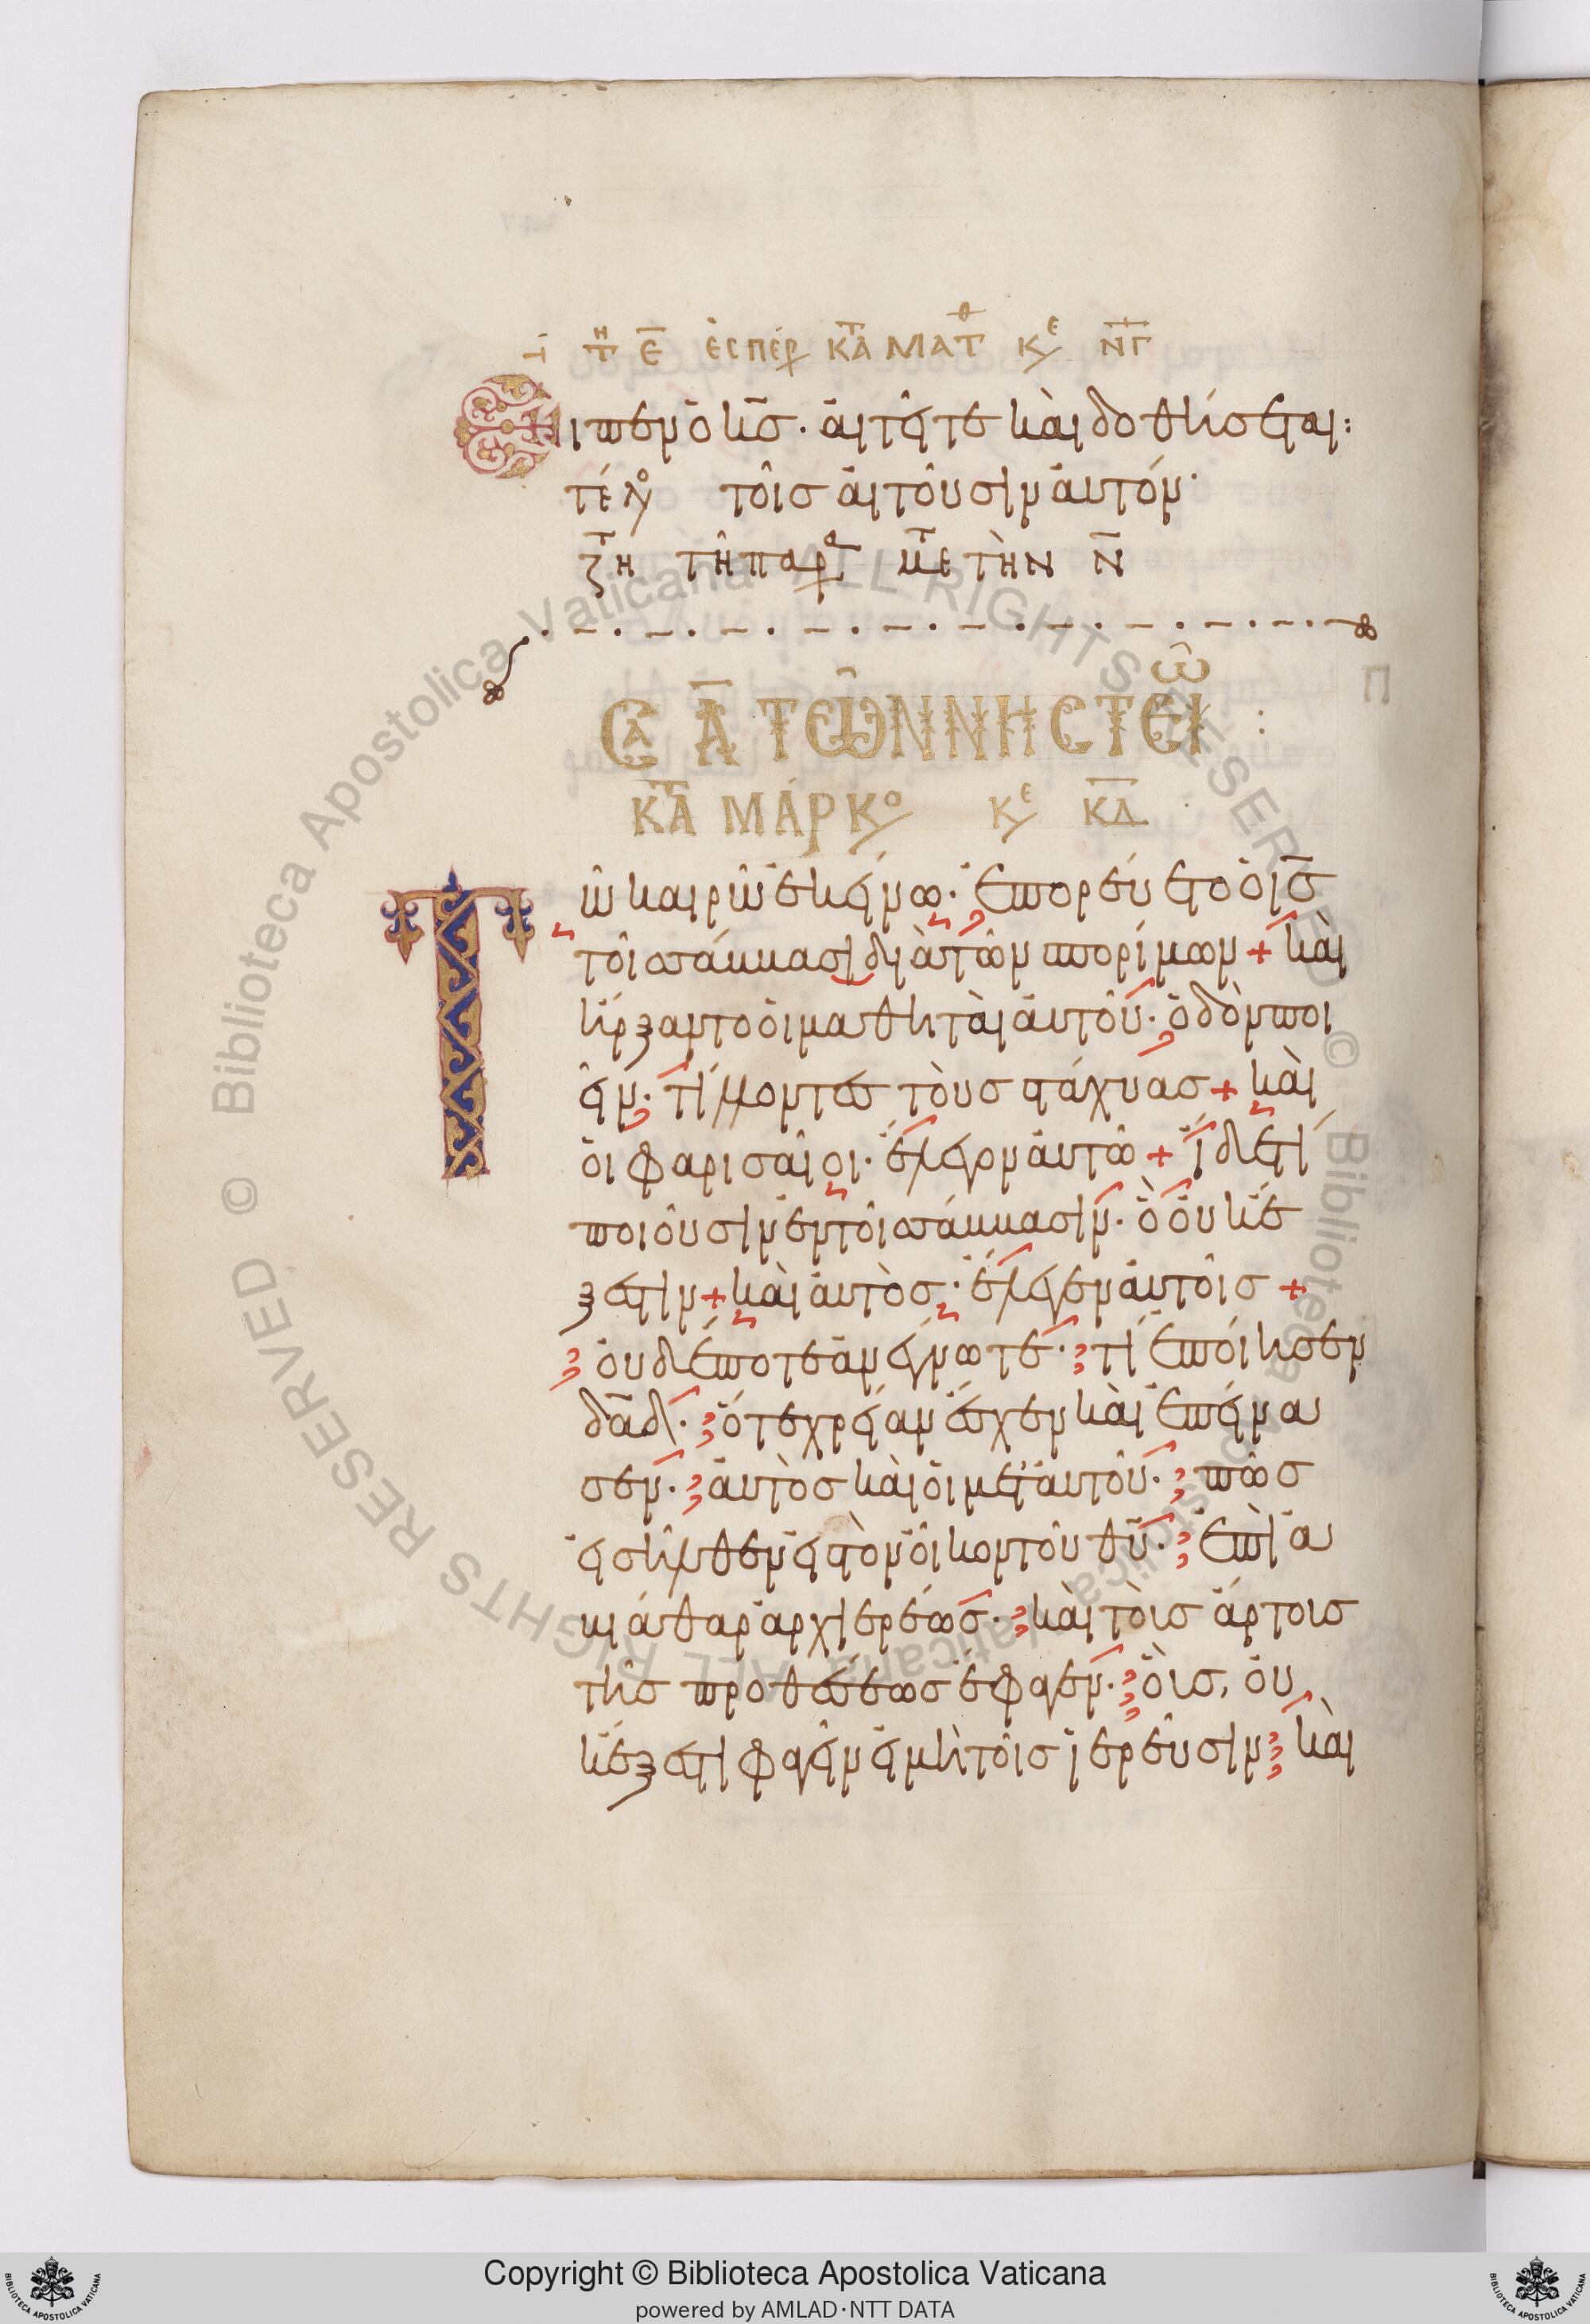 τῆ ε̄ ἑσπέρ κατὰ ματθ κε νγ
Εἶπεν ὁ κς̄· αἰτεῖτε καὶ δοθήσεται:
τέλο τοῖς αἰτοῦσιν αὐτόν·
ζη τῆ παρ με τὴν ν̄
ΣΑ Α ΤΩΝ ΝΗΣΤΕΙΩ :
ΚΑΤΑ ΜΑΡΚΟ ΚΕ ΚΔ
Τῶ καιρῶ ἐκείνω· ἐπορεύετο ὁ ις̄
τοῖς σάββασι διὰ τῶν σπορίμων + καὶ
ἤρξαντο οἱ μαθηταὶ αὐτοῦ· ὁδὸν ποι
εῖν· τίλλοντες τοὺς στάχυας + καὶ
οἱ φαρισαῖοι· ἔλεγον αὐτῶ + ἴδε τί
ποιοῦσιν ἐν τοῖς σάββασιν· ὃ οὐκ ἔ
ξεστιν + καὶ αὐτὸς· ἔλεγεν αὐτοῖς +
οὐδέποτε ἀνέγνωτε· τί ἐποίησεν
δᾱδ· ὅτε χρείαν ἔσχεν καὶ ἐπείνα
σεν· αὐτὸς καὶ οἱ μετ' αὐτοῦ· πῶς
εἰσῆλθεν εἰς τὸν οἶκον τοῦ θῡ· ἐπὶ ἀ
βιάθαρ ἀρχιερέως· καὶ τοὺς ἄρτους
τῆς προθέσεως ἔφαγεν· οἷς, οὐ
κ ἔξεστι φαγεῖν εἰ μὴ τοῖς ἱερεῦσιν καὶ
Copyright © Biblioteca Apostolica Vaticana
powered by AMLAD·NTT DATA